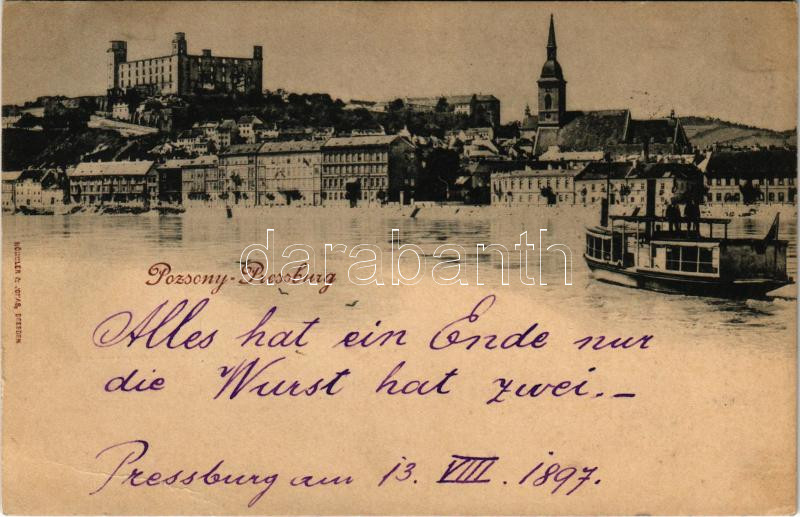 Pozsony-Pressburg
darabanth
RÖMMLER & JONAS, DRESDEN
Alles hat ein Ende nur
die Wurst hat zwei.–
Pressburg am 13. VIII. 1897.